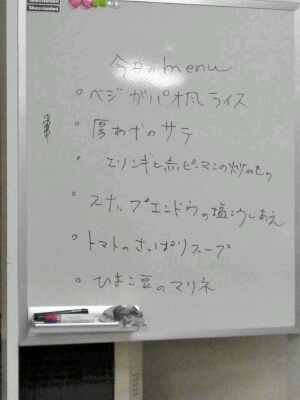 今日のmenu
ベジガパオ風ライス
厚あげのサテ
エリンギと赤ピーマンの炒めもの
スナップエンドウの塩こうじあえ
トマトのさっぱりスープ
ひよこ豆のマリネ